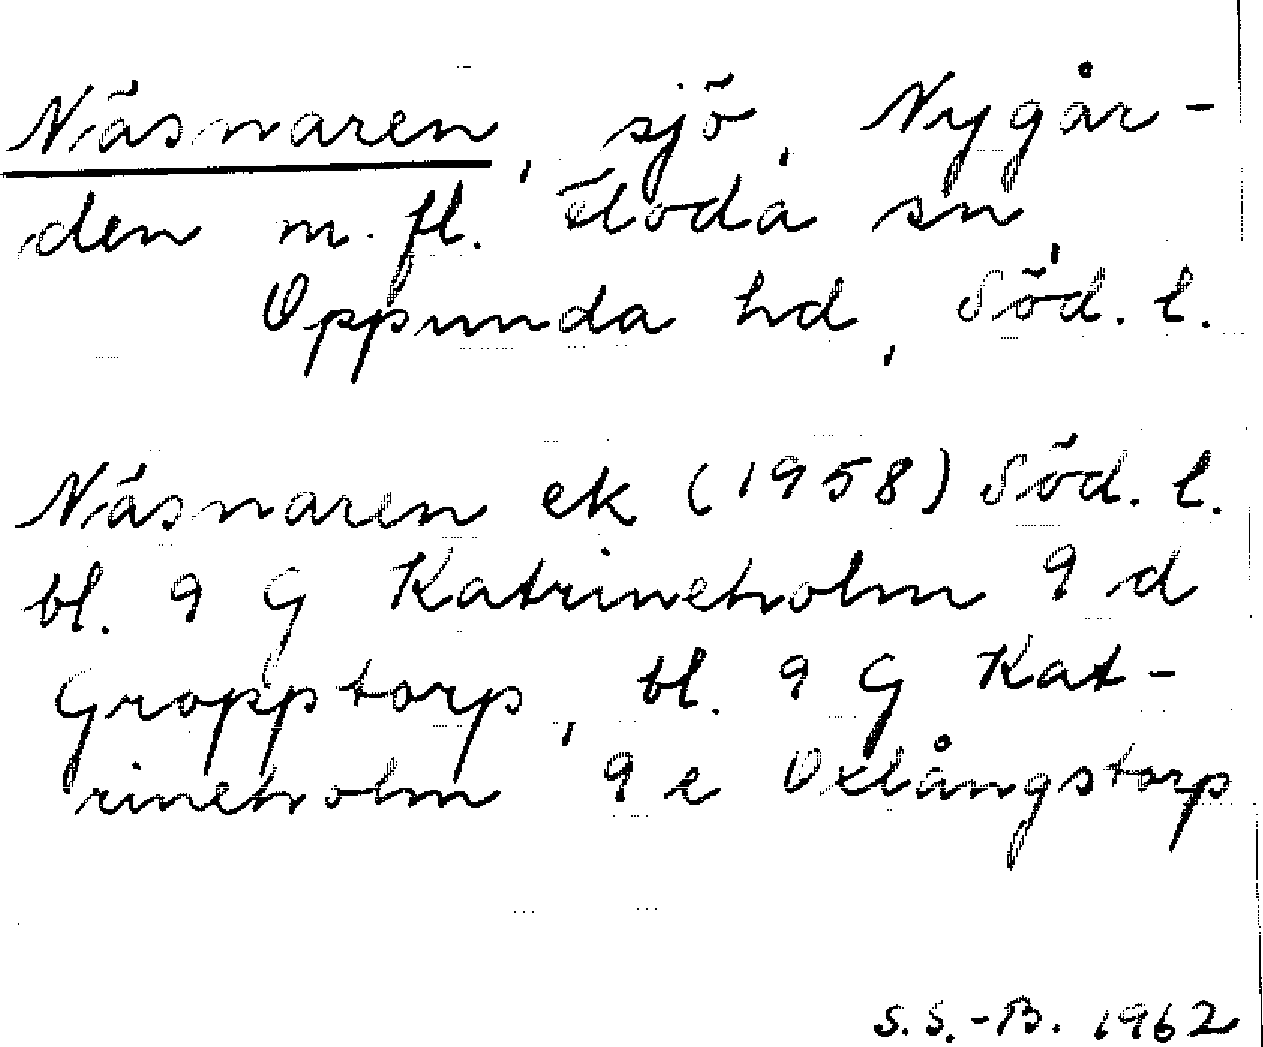 Näsnaren, sjö, Nygår-
den m. fl. Floda sn,
Oppunda hd, Söd. l.
Näsnaren ek (1958) Söd. l.
bl. 9 G Katrineholm 9 d
Gropptorp, bl. 9 G Kat-
rineholm 9 e Oxlångstorp
S.S.-B. 1962